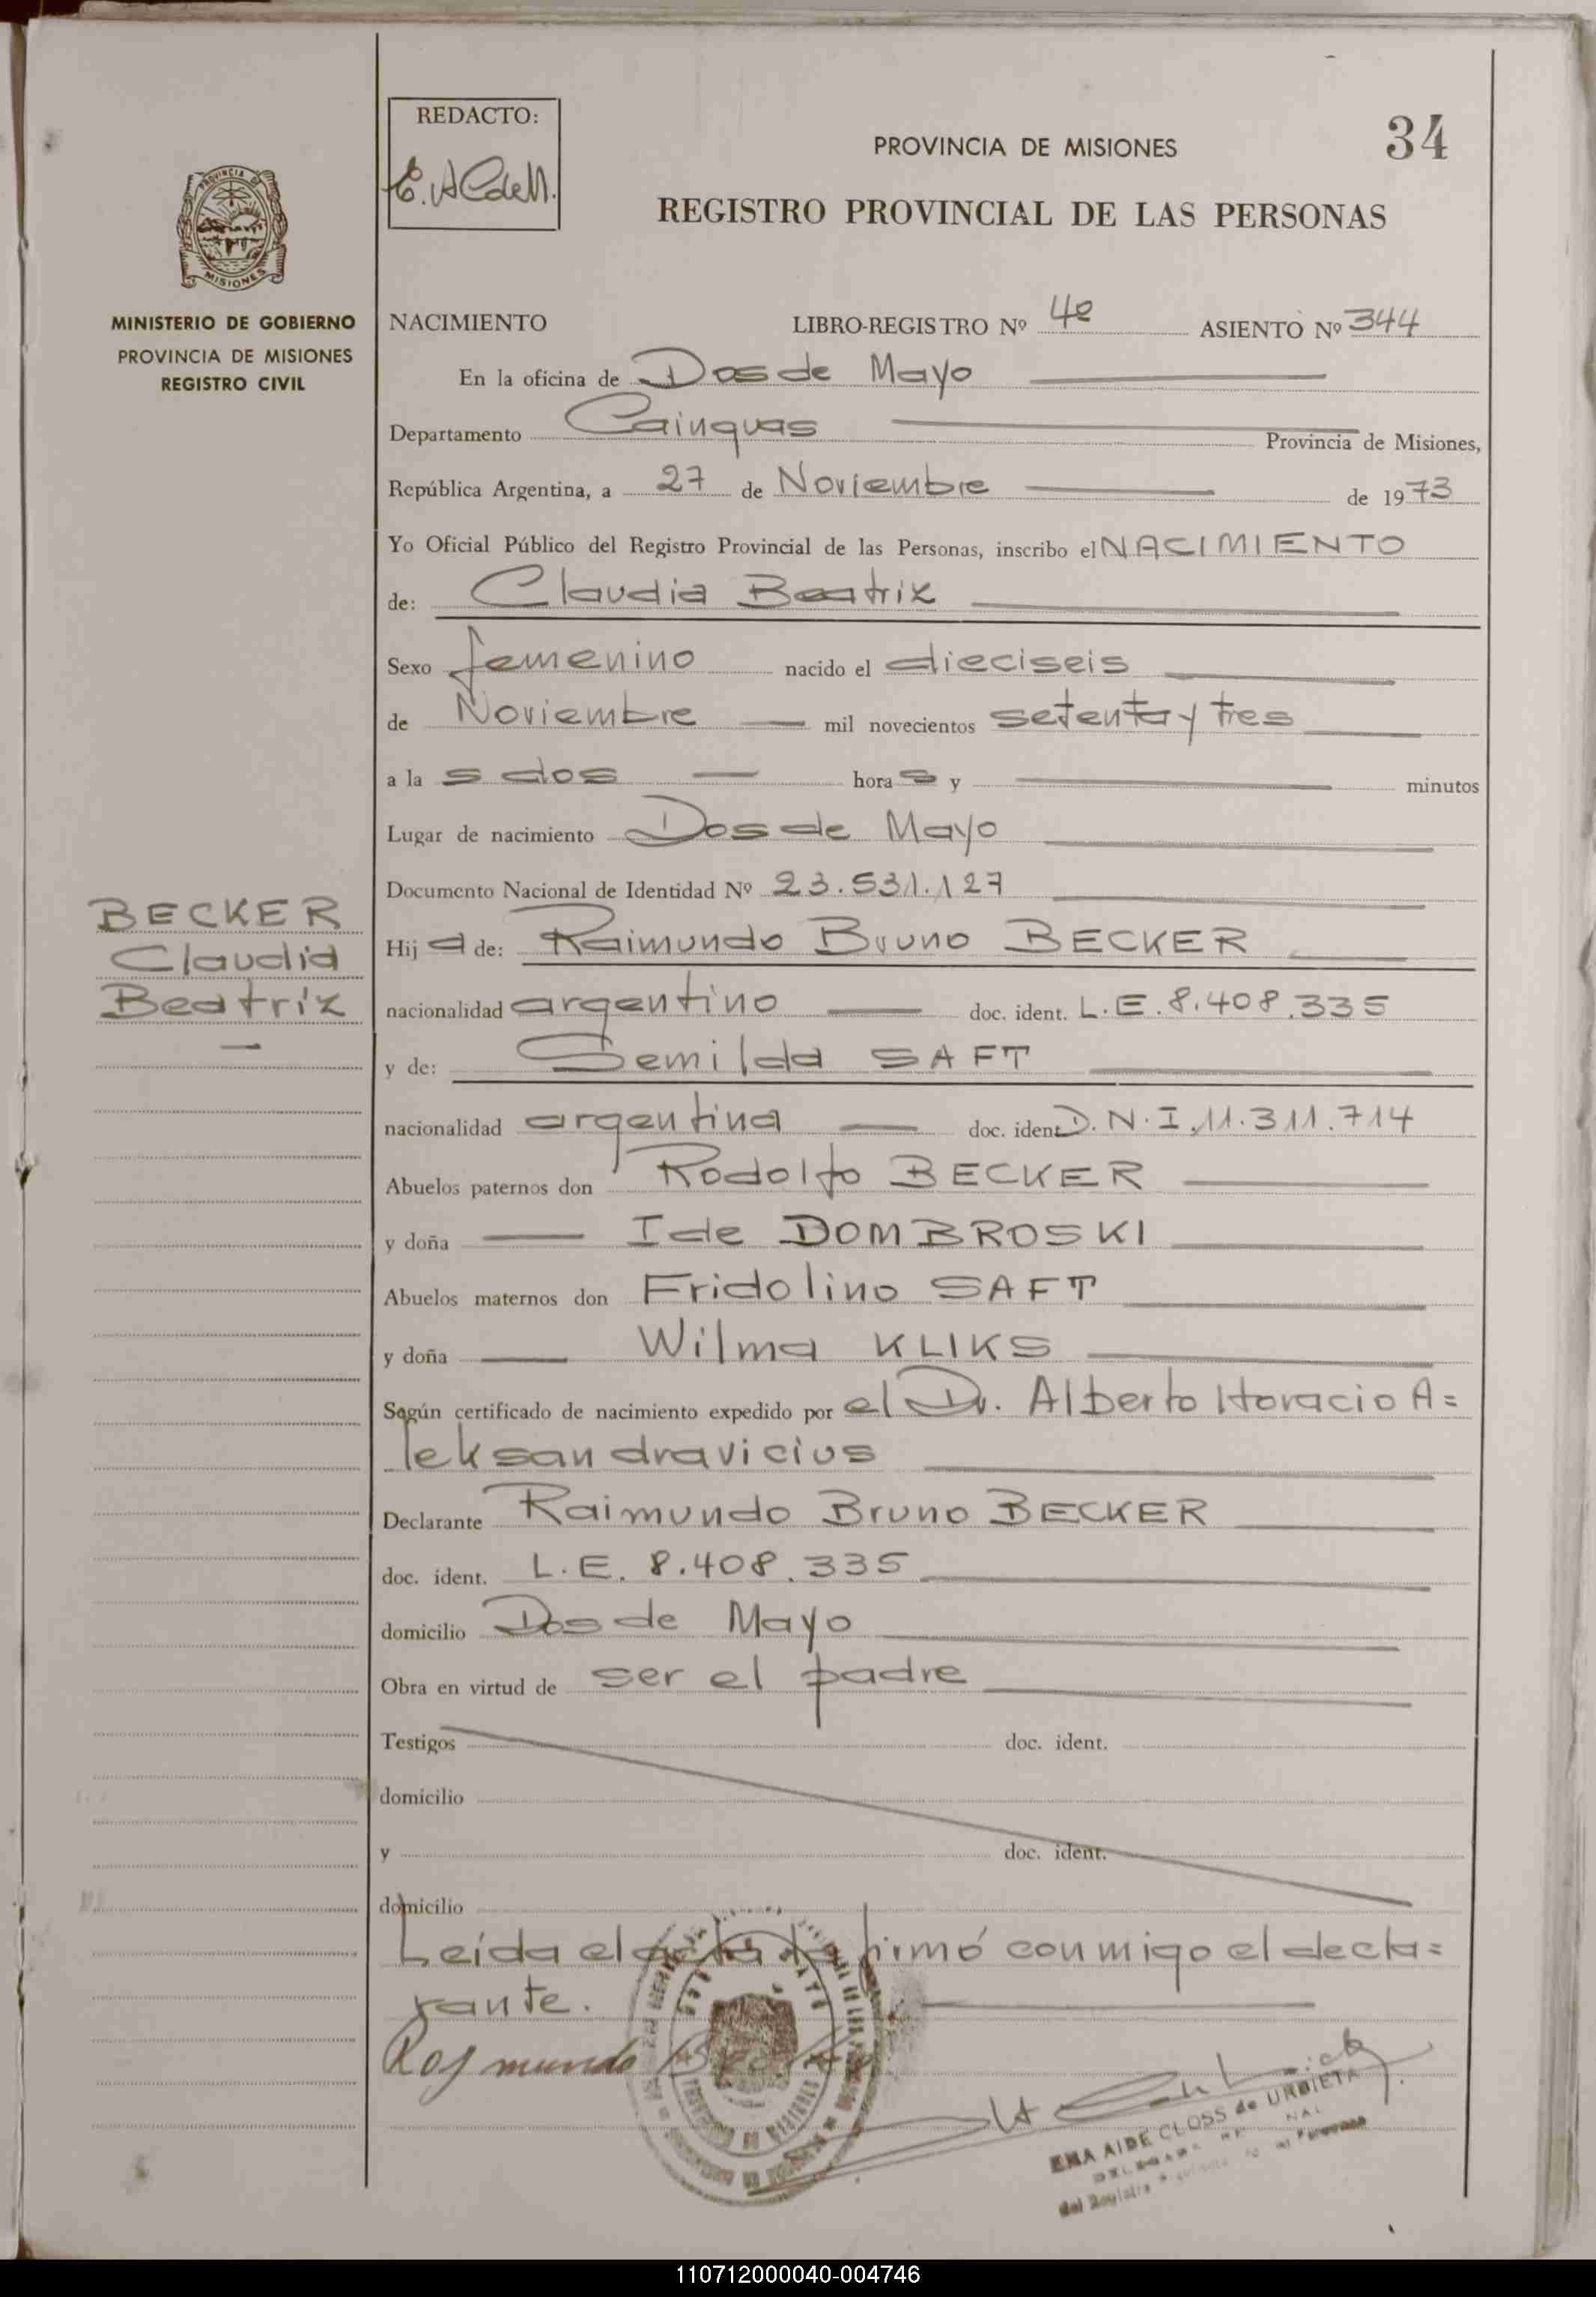 REDACTO:
PROVINCIA DE MISIONES
34
REGISTRO PROVINCIAL DE LAS PERSONAS
PROVINCIA DE
MISIONES
MINISTERIO DE GOBIERNO
PROVINCIA DE MISIONES
REGISTRO CIVIL
NACIMIENTO LIBRO-REGISTRO Nº 4º ASIENTO Nº 344
En la oficina de Dos de Mayo
Departamento Cainguas Provincia de Misiones,
República Argentina, a 27 de Noviembre de 1973
Yo Oficial Público del Registro Provincial de las Personas, inscribo el NACIMIENTO
de: Claudia Beatriz
Sexo femenino nacido el dieciseis
de Noviembre mil novecientos setenta y tres
a la s dos hora s y minutos
Lugar de nacimiento Dos de Mayo
Documento Nacional de Identidad Nº 23.531.127
BECKER
Claudia
Beatriz
Hij a de: Raimundo Bruno BECKER
nacionalidad argentino doc. ident. L.E. 8.408.335
y de: Semilda SAFT
nacionalidad argentina doc. ident D.N.I. 11.311.714
Abuelos paternos don Rodolfo BECKER
y doña Ide DOMBROSKI
Abuelos maternos don Fridolino SAFT
y doña Wilma KLIKS
Según certificado de nacimiento expedido por el Dr. Alberto Horacio A=
leksandravicius
Declarante Raimundo Bruno BECKER
doc. ident. L.E. 8.408.335
domicilio Dos de Mayo
Obra en virtud de ser el padre
Testigos doc. ident.
domicilio
y doc. ident.
domicilio
Leída el acta la firmó conmigo el decla=
rante.
EMA AIDE CLOSS de URBIETA
110712000040-004746